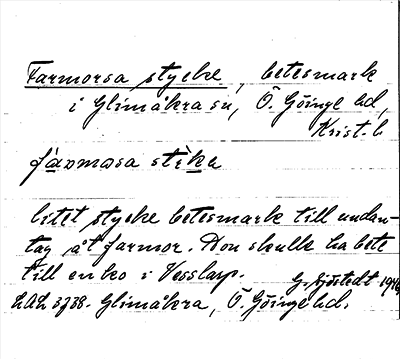 Farmorsa stycke, betesmark
i Glimåkra sn, Ö. Göinge hd,
Krist. l.
farmosa stika
litet stycke betesmark till undan-
tag åt farmor. Hon skulle ha bete
till en ko i Vesslarp.
G. Sjöstedt 1946
LAL 3738. Glimåkra, Ö. Göinge hd.